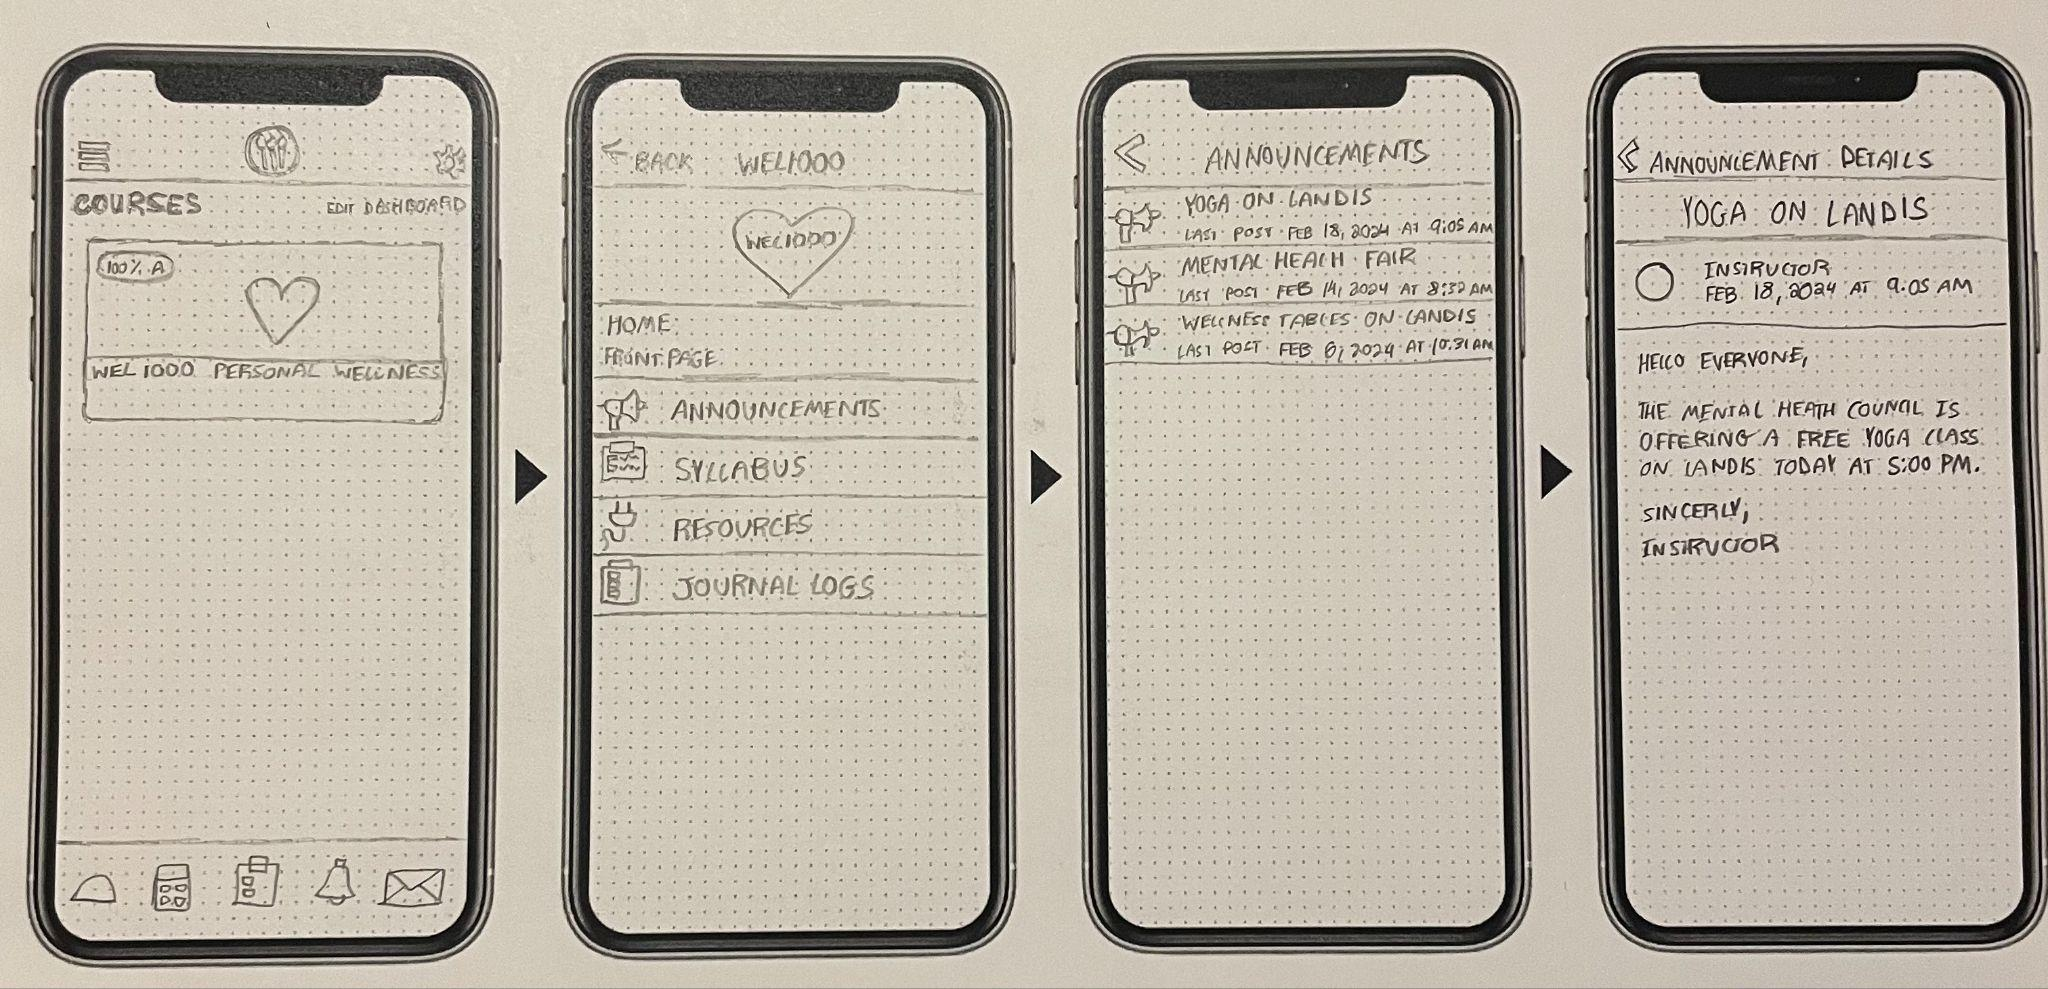 COURSES EDIT DASHBOARD
100% A
WEL 1000 PERSONAL WELLNESS
BACK WEL1000
WEL1000
HOME
FRONT PAGE
ANNOUNCEMENTS
SYLLABUS
RESOURCES
JOURNAL LOGS
ANNOUNCEMENTS
YOGA ON LANDIS
LAST POST FEB 18, 2024 AT 9:05 AM
MENTAL HEALH FAIR
LAST POST FEB 14, 2024 AT 8:32 AM
WELLNESS TABLES ON LANDIS
LAST POST FEB 6, 2024 AT 10:31 AM
ANNOUNCEMENT DETAILS
YOGA ON LANDIS
INSTRUCTOR
FEB 18, 2024 AT 9:05 AM
HELLO EVERYONE,
THE MENTAL HEATH COUNCIL IS
OFFERING A FREE YOGA CLASS
ON LANDIS TODAY AT 5:00 PM.
SINCERLY,
INSTRUCTOR